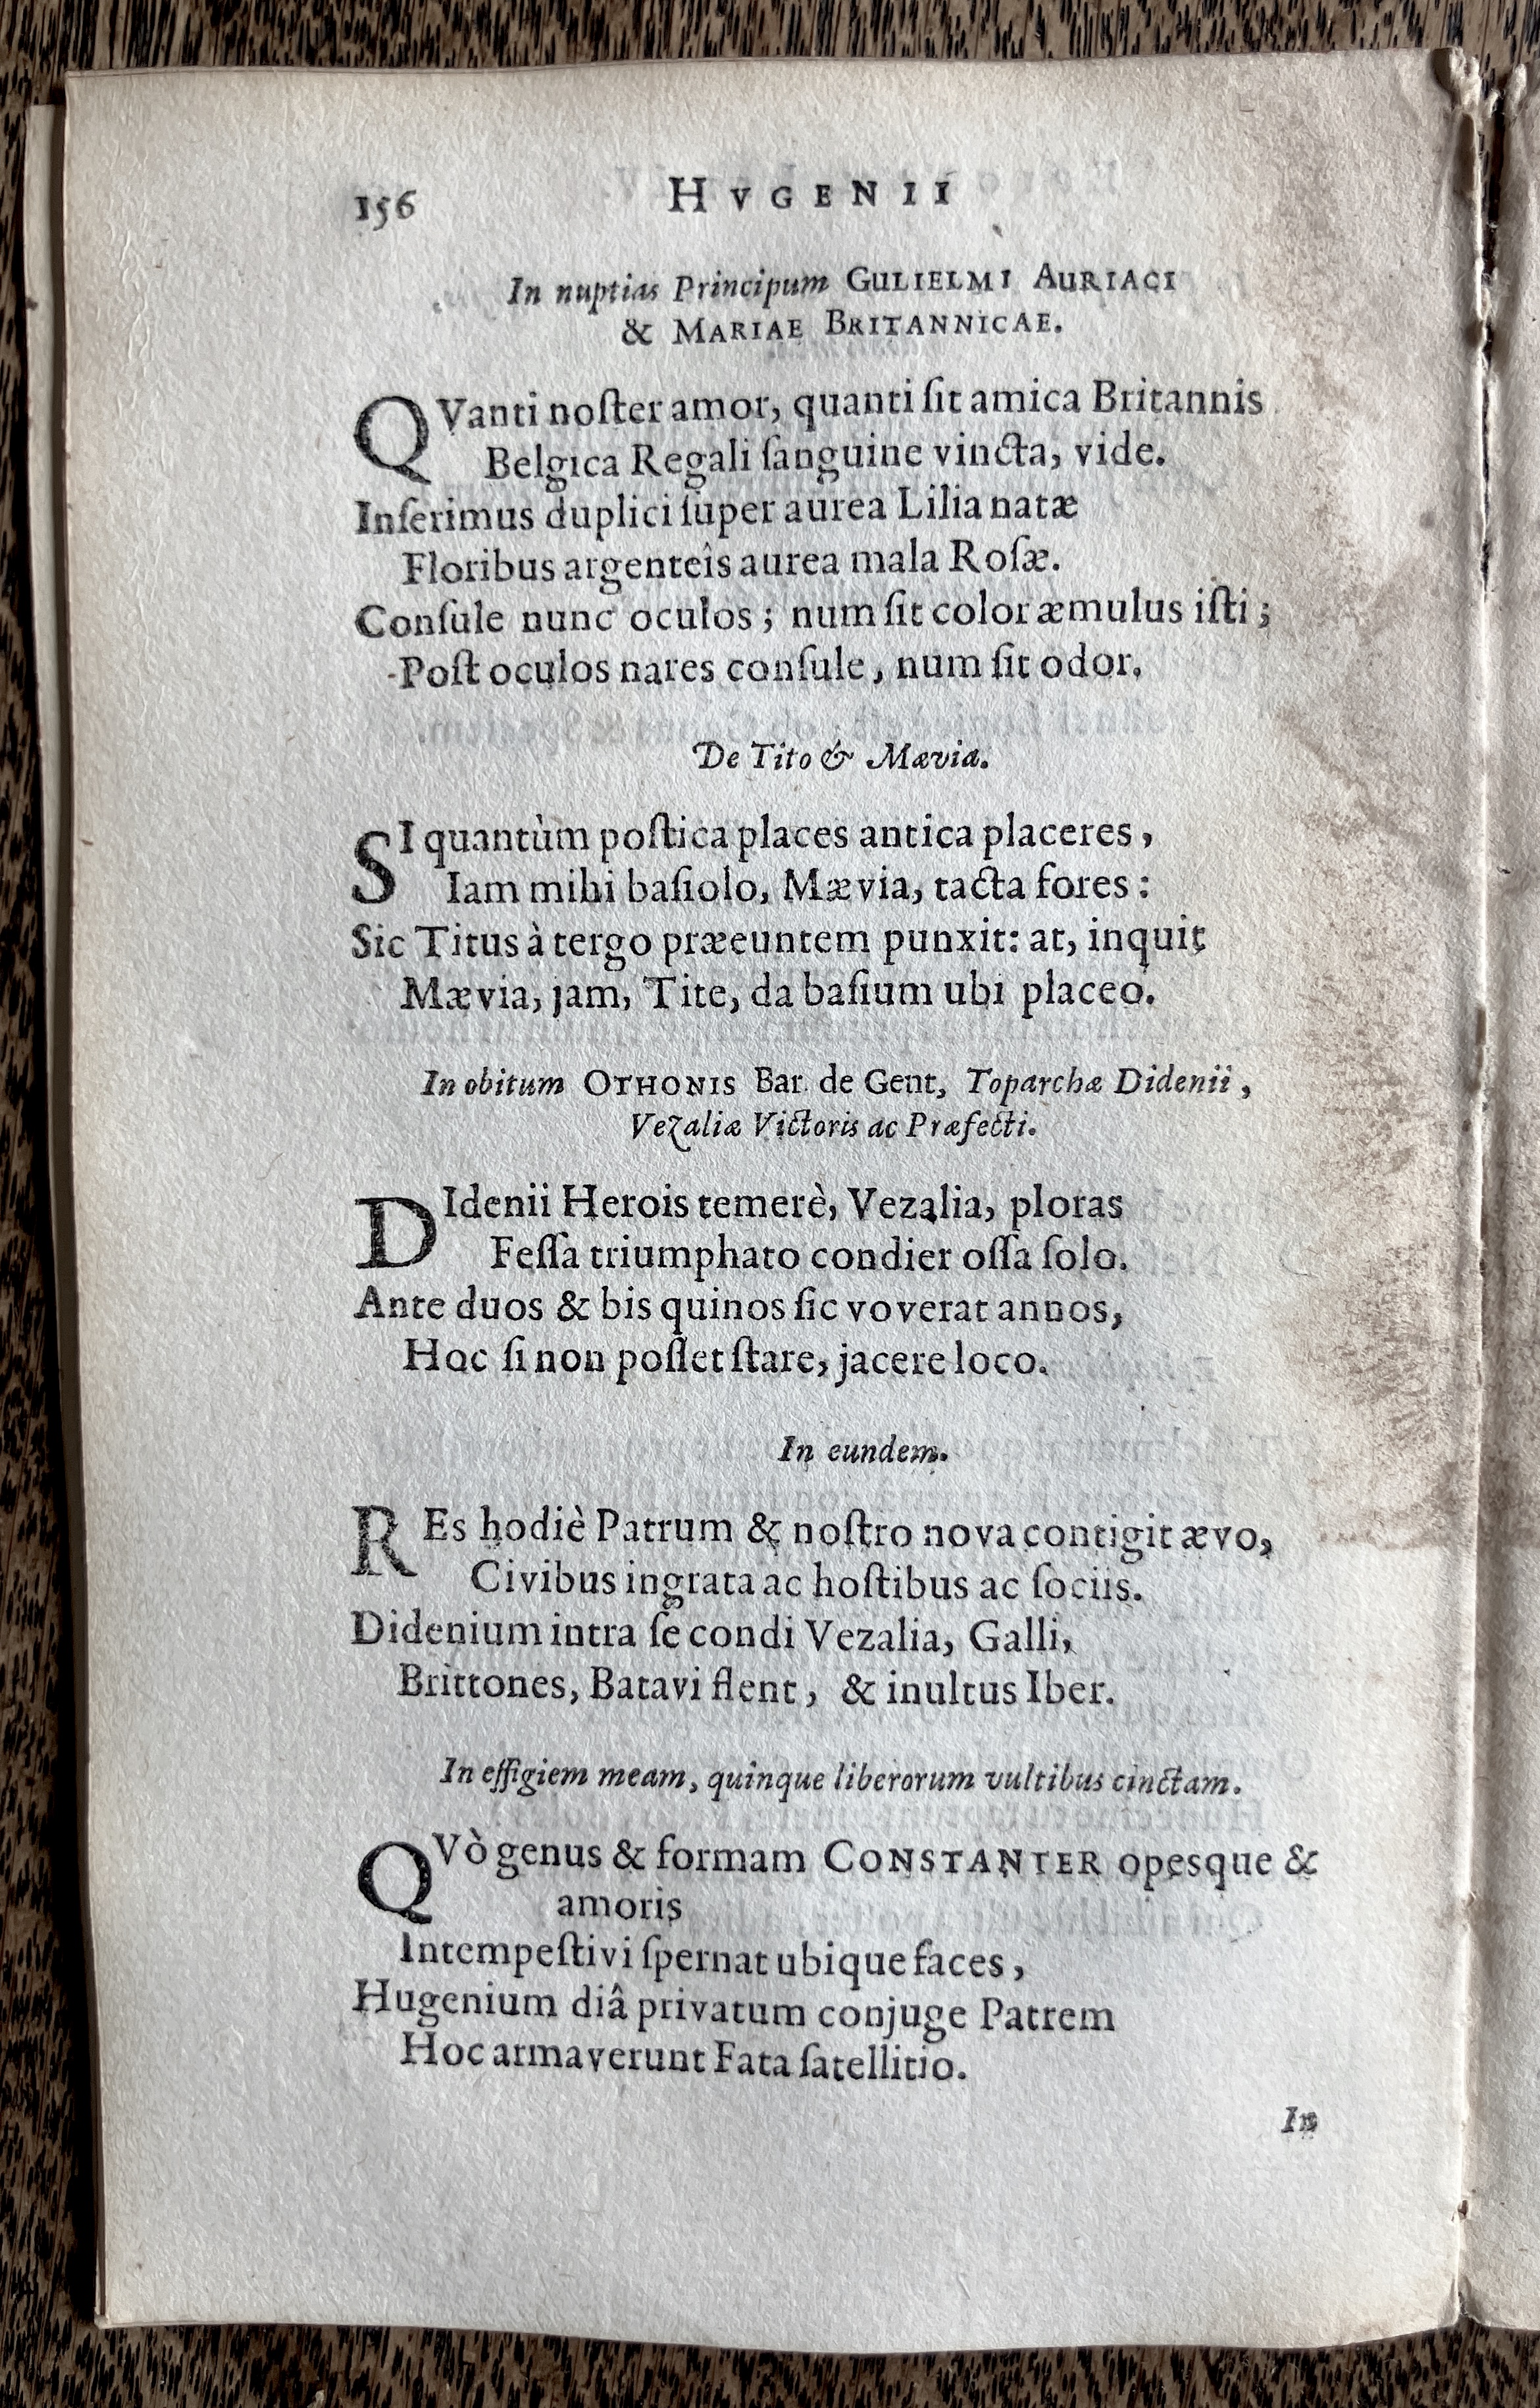 156 HVGENII
In nuptias Principum GULIELMI AURIACI
& MARIAE BRITANNICAE.
QVanti noſter amor, quanti ſit amica Britannis
Belgica Regali ſanguine vincta, vide.
Inſerimus duplici ſuper aurea Lilia natæ
Floribus argenteîs aurea mala Roſæ.
Conſule nunc oculos; num ſit color æmulus iſti;
Poſt oculos nares conſule, num ſit odor.
De Tito & Mævia.
SI quantùm poſtica places antica placeres,
Iam mihi baſiolo, Mævia, tacta fores:
Sic Titus à tergo præeuntem punxit: at, inquit
Mævia, jam, Tite, da baſium ubi placeo.
In obitum OTHONIS Bar. de Gent, Toparchæ Didenii,
Vezaliæ Victoris ac Præfecti.
DIdenii Herois temerè, Vezalia, ploras
Feſſa triumphato condier oſſa ſolo.
Ante duos & bis quinos ſic voverat annos,
Hoc ſi non poſſet ſtare, jacere loco.
In eundem.
REs hodiè Patrum & noſtro nova contigit ævo,
Civibus ingrata ac hoſtibus ac ſociis.
Didenium intra ſe condi Vezalia, Galli,
Brittones, Batavi flent, & inultus Iber.
In effigiem meam, quinque liberorum vultibus cinctam.
QVò genus & formam CONSTANTER opesque &
amoris
Intempeſtivi ſpernat ubique faces,
Hugenium diâ privatum conjuge Patrem
Hoc armaverunt Fata ſatellitio.
In